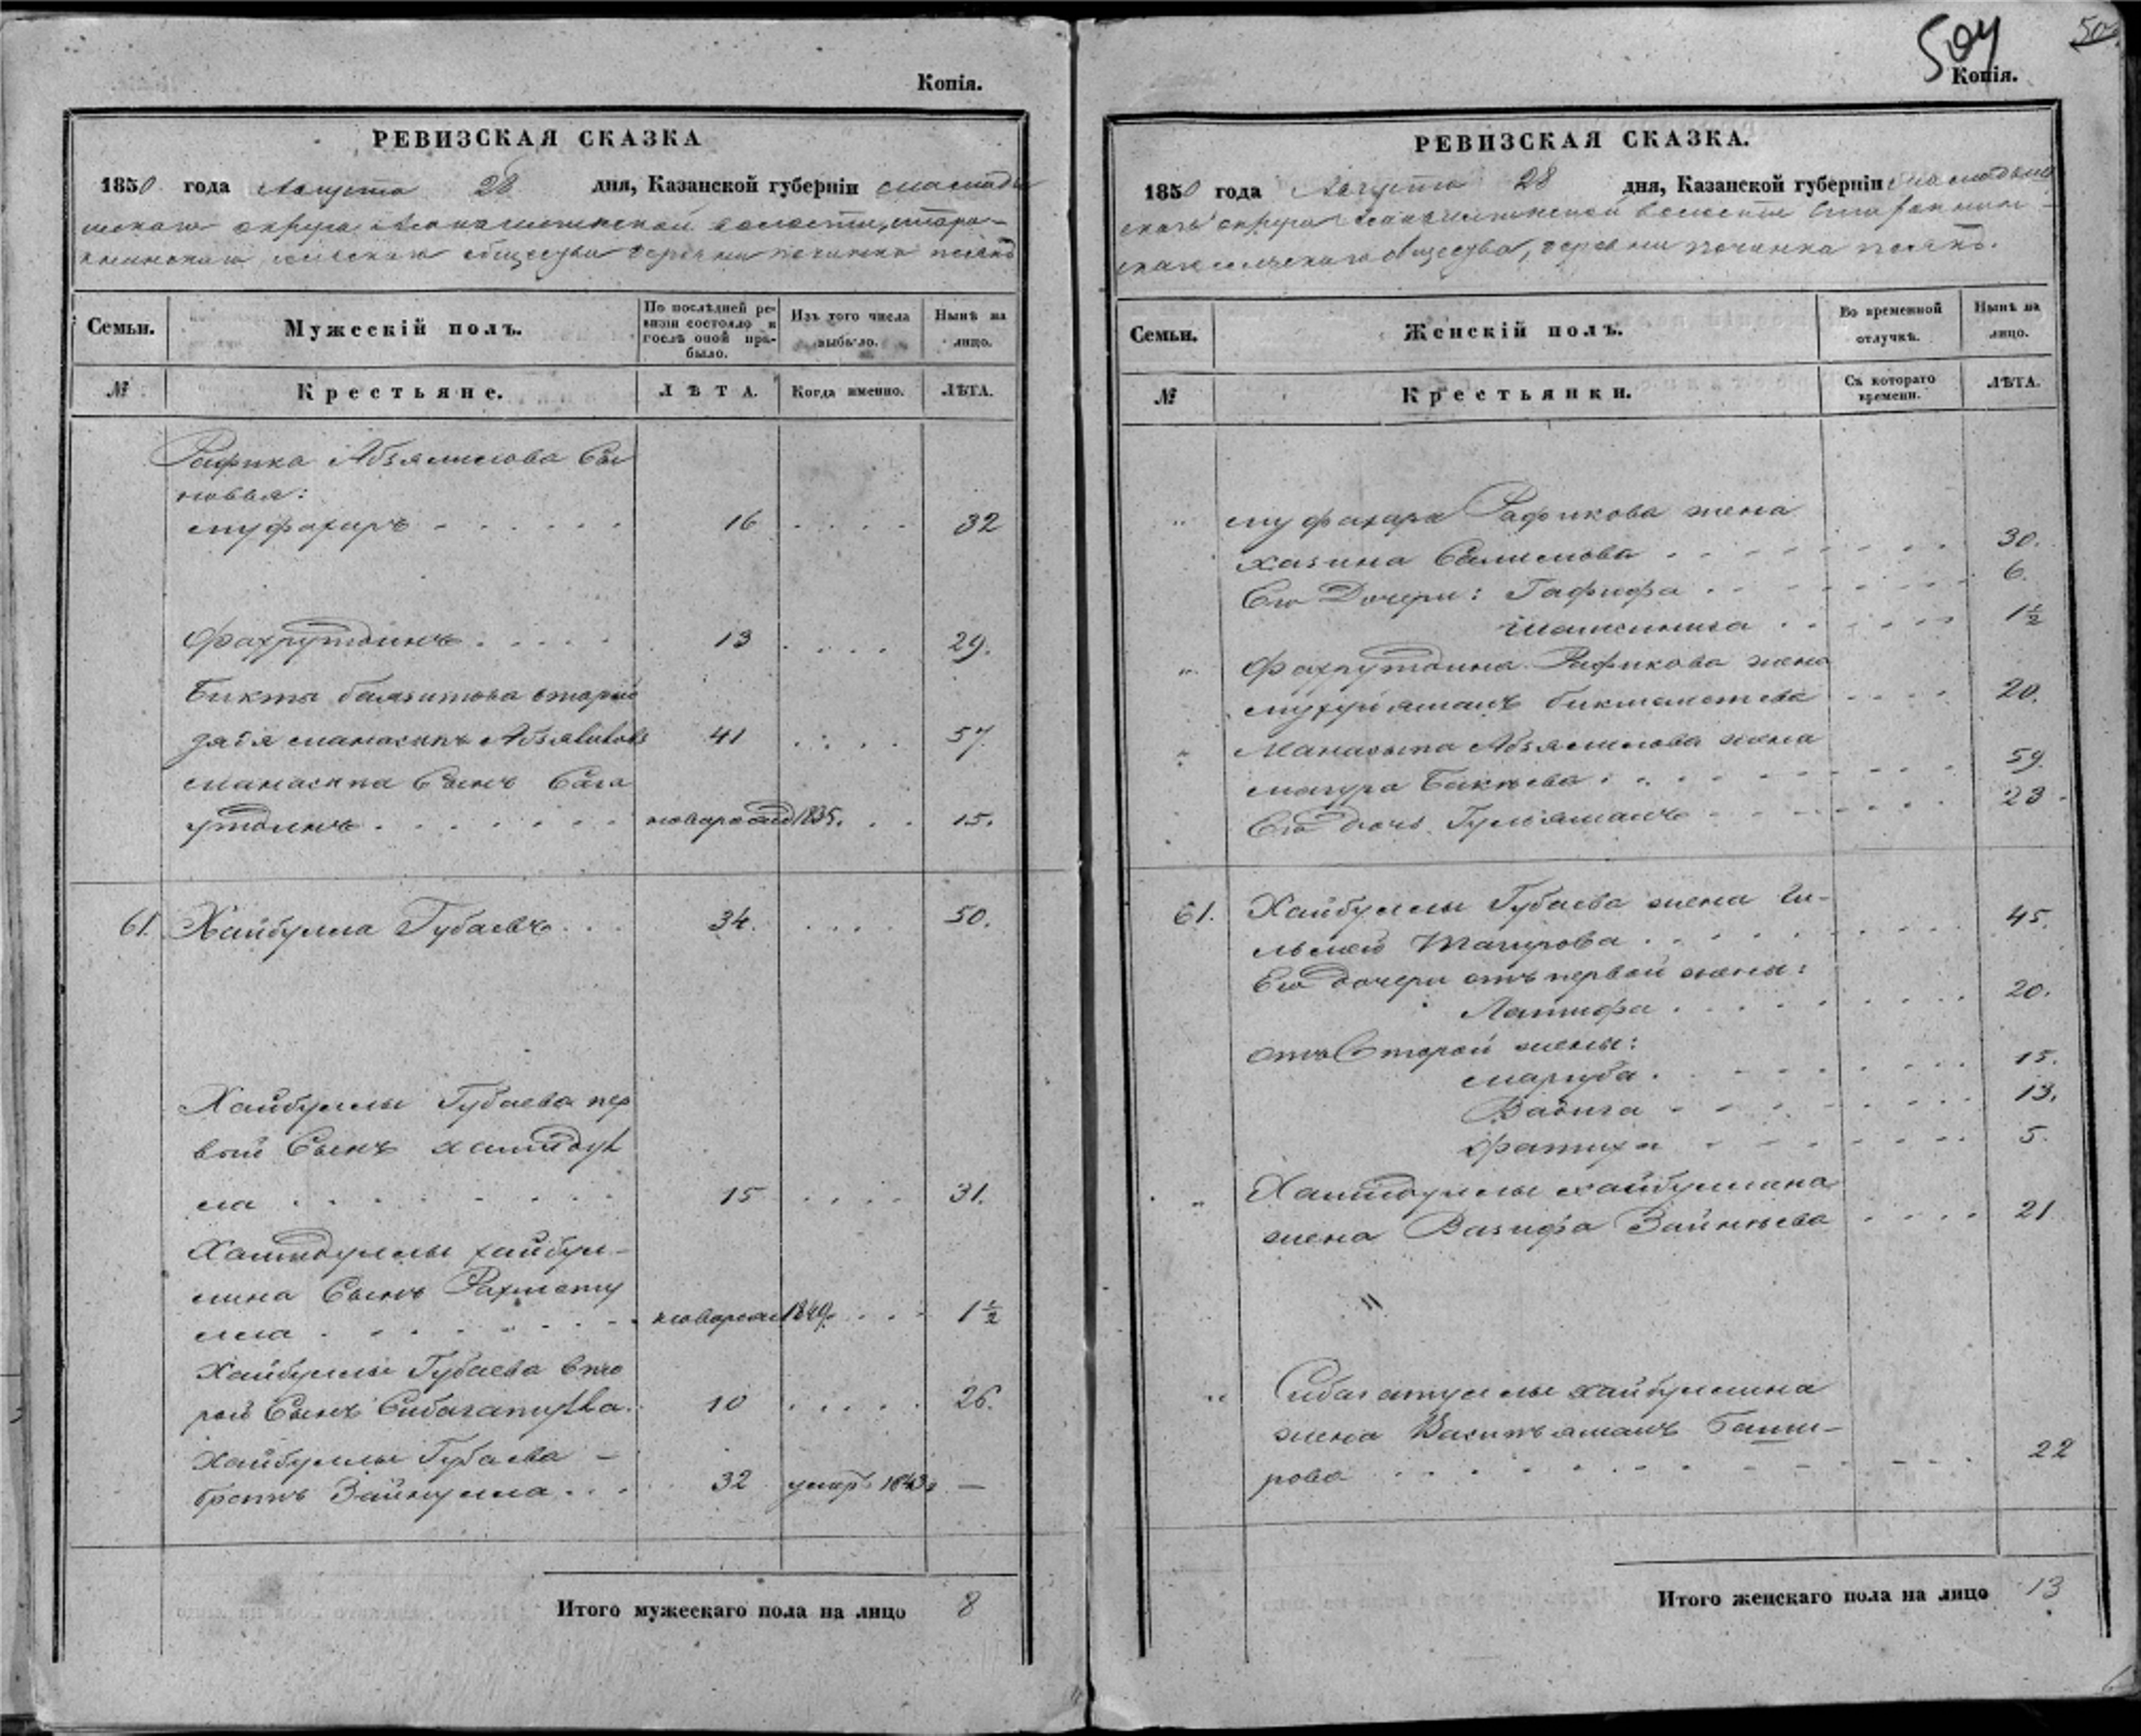 Копія.
РЕВИЗСКАЯ СКАЗКА
1850 года Августа 28 дня, Казанской губерніи мамады
шскаго округа волости, старо-
сельскаго общества деревни починка
Семьи.
Мужескій полъ.
По послѣдней ре-
визіи состояло и
послѣ оной при-
было.
Изъ того числа
выбыло.
Нынѣ на
лицо.
№
Крестьяне.
ЛѢТА.
Когда именно.
ЛѢТА.
Рафика Абзялилова сы
новья:
муфахаръ 16 32
Фахрутдинъ 13 29.
Бикта баязитова вторый
дядя манасыпъ Абзялиловъ 41 57
манасыпа Сынъ Сага
утдинъ новорожд 1835. 15.
61. Хайбулла Губаевъ 34. 50.
Хайбуллы Губаева пер
вой Сынъ хамидул
ла 15 31.
Хамидуллы хайбул-
лина Сынъ Рахмету
лла новорож 1849. 1½
Хайбуллы Губаева вто
рой Сынъ Сибагатулла. 10 26.
Хайбуллы Губаева -
братъ Зайнулла 32 умръ 1843 —
Итого мужескаго пола на лицо 8
504
Копія.
РЕВИЗСКАЯ СКАЗКА.
1850 года Августа 28 дня, Казанской губерніи мамадыш
скаго округа волости
скаго сельскаго общества, деревни починка
Семьи.
Женскій полъ.
Во временной
отлучкѣ.
Нынѣ на
лицо.
№
Крестьянки.
Съ котораго
времени.
ЛѢТА.
„ муфахара Рафикова жена
хазина Салимова 30.
Его Дочери: Гафифа 6.
шамсиниса 1½
„ Фахрутдина Рафикова жена
бикмаметева 20.
„ Манасыпа Абзялилова жена
магура Бакѣева 59.
Его дочь Гульямалъ 23
61. Хайбуллы Губаева жена Ги-
Тагирова 45.
Его дочери отъ первой жены:
Латифа 20.
отъ второй жены:
маргуба 15.
Вадига 13.
фатиха 5.
„ Хамидуллы хайбуллина
жена Вазифа Зайнѣева 21
„
„ Сибагатуллы хайбуллина
жена Баши-
рова 22
Итого женскаго пола на лицо 13